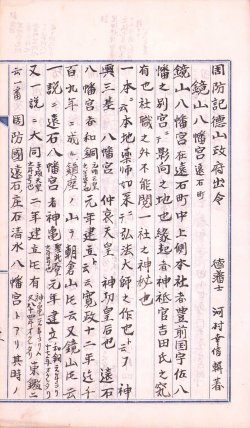 周防記德山政府出令
德藩士 河村幸信輯纂
鏡山八幡宮 遠石町
鏡山八幡宮在遠石町中上側本社者豊前国宇佐八
幡之別宮ニ影向之地也縁起者神祇官吉田氏之究
有也社職之外不能閲一社之神秘也
一本ニ云本地霊師如来ニ弘法大師之作也ト云フ 神
輿三基 八幡宮 仲哀天皇 神功皇后也 遠石
八幡宮者和銅元年建立ト云云寛政十二年迄千
百九年ニ成ル鎮座ノ山ヲ朝倉山ト云又鏡山ト云
一説ニ遠石八幡宮者神亀元年建立
又一説ニ大同二年建立 東鑑ニ
云一番周防國遠石庄石清水八幡宮トアリ其時ノ